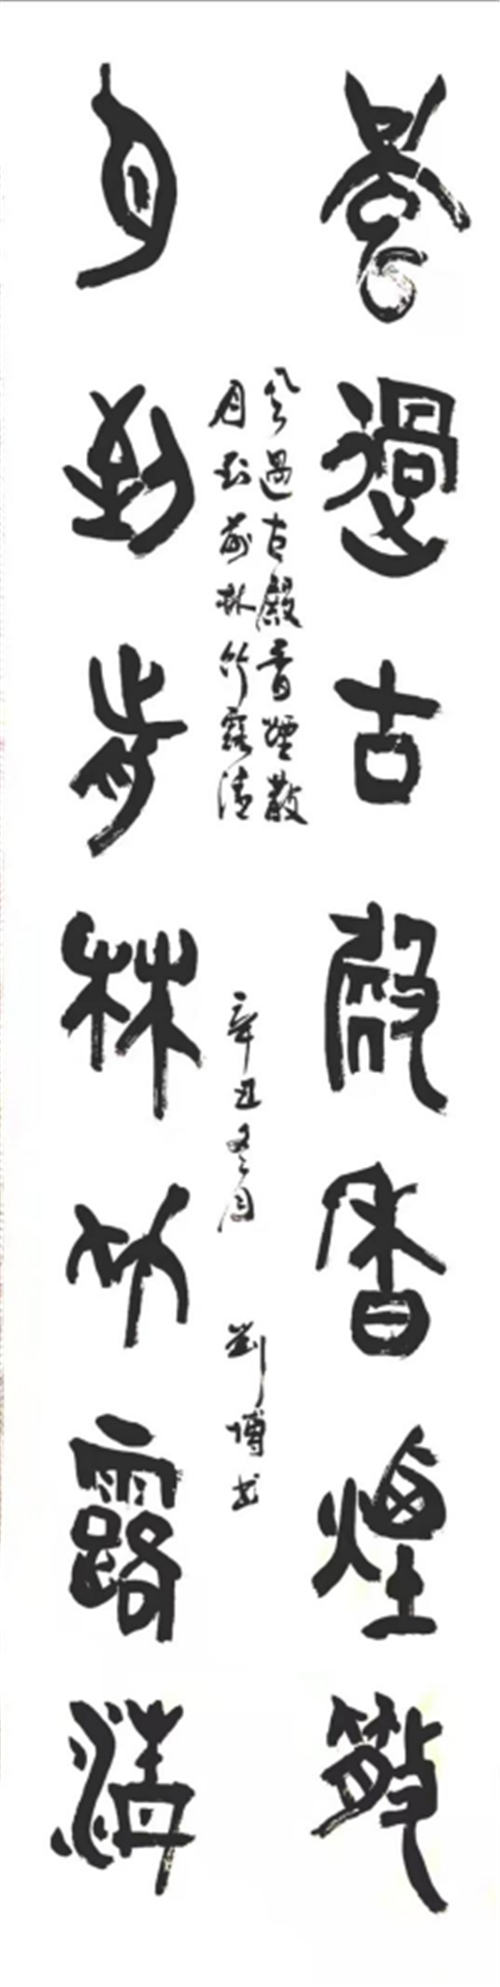 風過古殿香煙散
月到前林竹露清
风過古殿香煙散
月到前林竹露清
辛丑冬月 劉博书